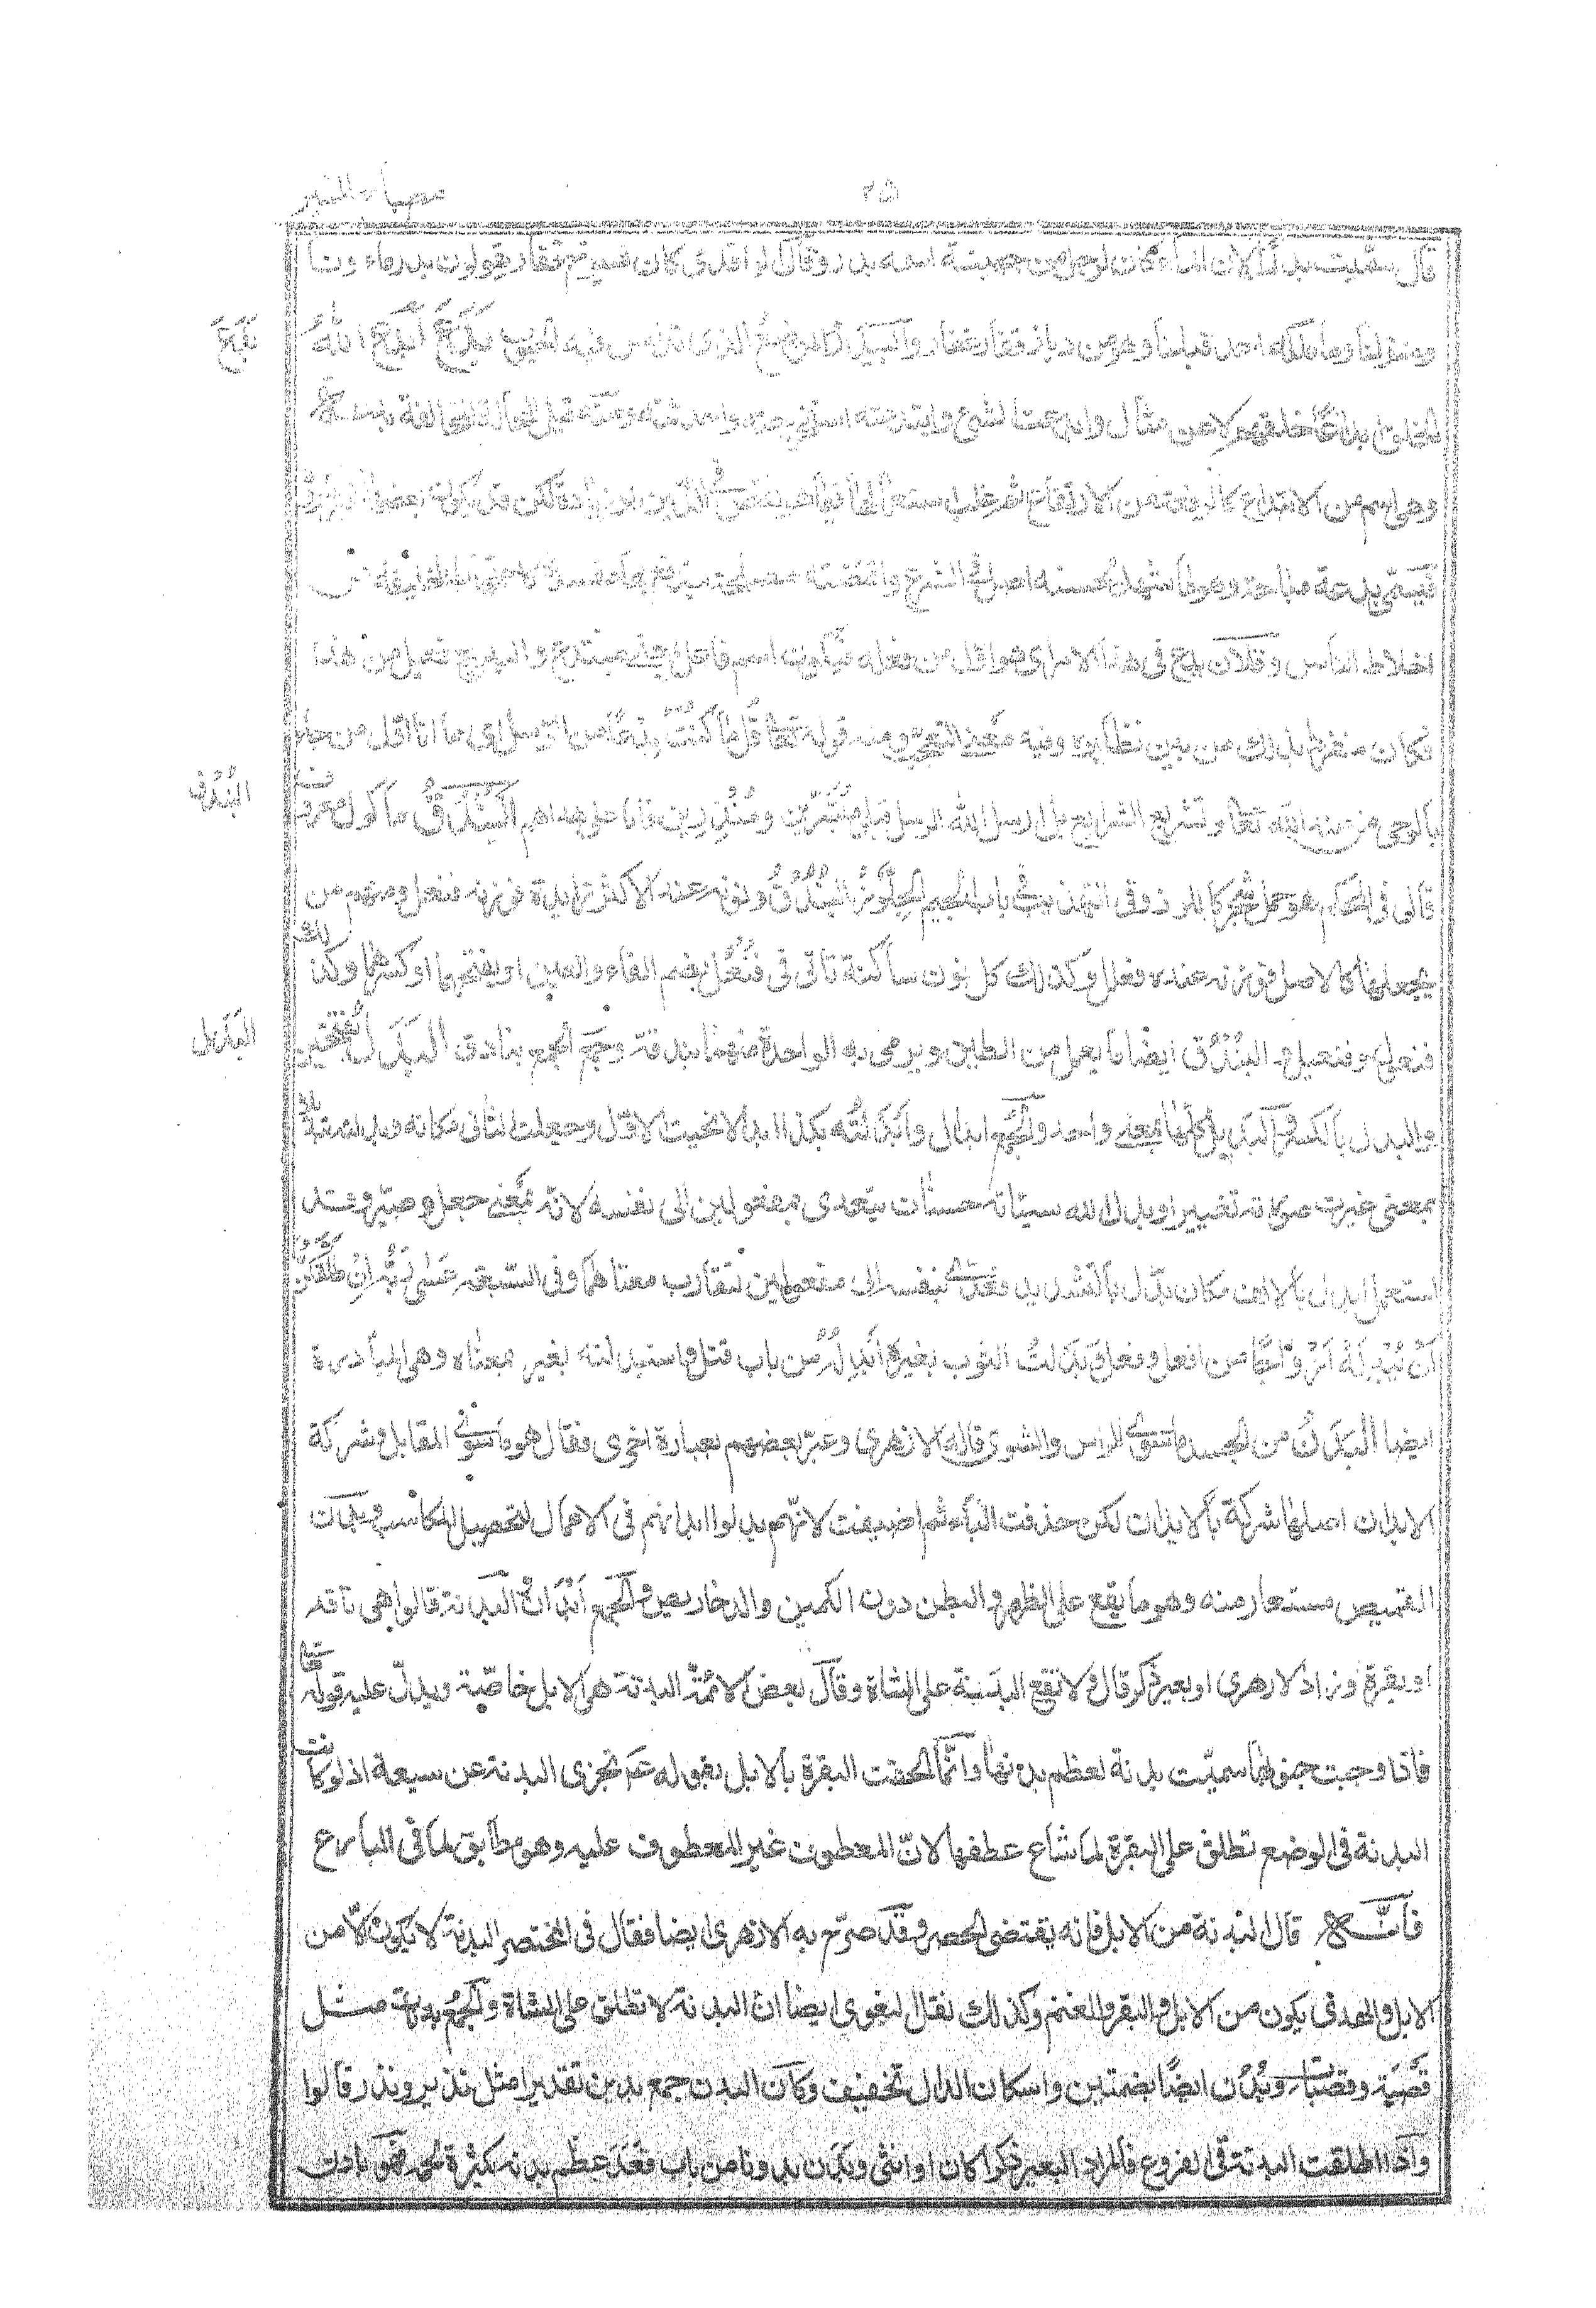 ٢٥
مصباح المنير
قال سميت بدرا لان الماء كان لرجل من جهينة اسمه بدر وقال الواقدى كان شيوخ غفار يقولون بدر ماءنا
ومنزلنا وما ملكه احد قبلنا وهو من ديار غفار والبيدر الموضع الذى تداس فيه الحبوب بَدَعَ أبدع اللهُ
بدع
الخلق ابداعًا خلقهم لا عن مثال وابدعت الشئ وابتدعته استخرجته واحدثته ومنه قيل للحالة المخالفة بدعة
وهى اسم من الابتداع كالرفعة من الارتفاع ثم غلب استعمالها فيما هو نقص فى الدين او زيادة لكن قد يكون بعضها
فيسمى بدعة مباحة وهو ما شهد لحسنه اصل فى الشرع واقتضته مصلحة يندفع بها مفسدة كاحتجاب الخليفة عن
اخلاط الناس وفلان بدع فى هذا الامر اى هو اول من فعله فيكون اسم فاعل بمعنى مبتدع والبديع فعيل من هذا
فكان منفردا بذلك من بين نظايره وفيه معنى التعجب ومنه قوله تعالى قُل ما كُنتُ بِدْعًا من الرسل اى ما انا اول من جاء
بالوحى من عند الله تعالى وتشريع الشرايع بل ارسل الله الرسل قبلى مُبَشِّرِين ومُنذِرِين فانا على هداهم اَلبُنْدُقُ ماكول معروف
البُنْدُق
قال فى المحكم هو حمل شجر كالجلوز وفى التهذيب فى باب الجيم الجِلَّوْزُ البُنْدُقُ ونونه عند الاكثر زايدة فوزنه فنعل ومنهم من
يجعلها كالاصل فوزنه عنده فعلل وكذلك كل نون ساكنة تاتى فى فُنْعُل بضم الفاء والعين او بفتحهما او كسرهما وكذلك
فنعلى وفنعيل والبُنْدُق ايضا ما يعمل من الطين ويرمى به الواحدة منها بندقة وجمع الجمع بنادق اَلْبَدَلُ بفتحتين
البَدَل
والبدل بالكسر والبديل كلها بمعنى واحد والجمع ابدال وأبْدَلْتُه بكذا ابدالا نحيت الاول وجعلت الثانى مكانه وبدلته تبديلا
بمعنى غيرت صورته تغييرا وبدل الله سيئاته حسنات يتعدى بمفعولين الى نفسه لانه بمعنى جعل وصيّر وقد
استعمل ابدل بالالف مكان بدّل بالتشديد فعُدِّى بنفسه الى مفعولين لتقارب معناهما وفى السبعة عَسٰى رَبُّه اِنْ طَلَّقَكُنَّ
اَنْ يُبْدِلَهُ اَزْوَاجًا من افعل وفعل وبَدَلتُ الثوب بغيره اَبْدِلُه من باب قتل واستبدلته بغيره بمعناه وهى المبادلة
ايضا اَلْبَدَنُ من الجسد ما سوى الراس والشوى قاله الازهرى وعبّر بعضهم بعبارة اخرى فقال هو ما سوى المقاتل وشركة
الابدان اصلها شركة بالابدان لكن حذفت الباء ثم اضيفت لانهم بدلوا ابدانهم فى الاعمال لتحصيل المكاسب وبدن
القميص مستعار منه وهو ما يقع على الظهر والبطن دون الكمين والدخاريص والجمع اَبْدَان اَلْبَدَنة قالوا هى ناقة
او بقرة وزاد الازهرى او بعير ذكر قال ولا تقع البدنة على الشاة وقال بعض الائمة البدنة هى الابل خاصّة ويدلّ عليه قوله تعالى
فاذا وجبت جنوبها سميّت بدنة لعظم بدنها وانّما الحقت البقرة بالابل بقوله عم تجزى البدنة عن سبعة اذ لو كانت
البدنة فى الوضع تطلق على البقرة لما شاع عطفها لانّ المعطوف غير المعطوف عليه وهو مطابق لما فى البارع
فانّه قال البدنة من الابل فانه يقتضى الحصر وقد صرّح به الازهرى ايضا فقال فى المختصر البدنة لا تكون الّا من
الابل والهدى يكون من الابل والبقر والغنم وكذلك نقل البغوى ايضا ان البدنة لا تطلق على الشاة والجمع بدنات مثل
قصبة وقصبات وبُدُن ايضًا بضمتين واسكان الدال تخفيف وكان البدن جمع بدين تقديرا مثل نذير ونذر قالوا
واذا اطلقت البدنة فى الفروع فالمراد البعير ذكرا كان او انثى وبَدَن بدونا من باب قعد عظم بدنه بكثرة لحمه فهو بادن